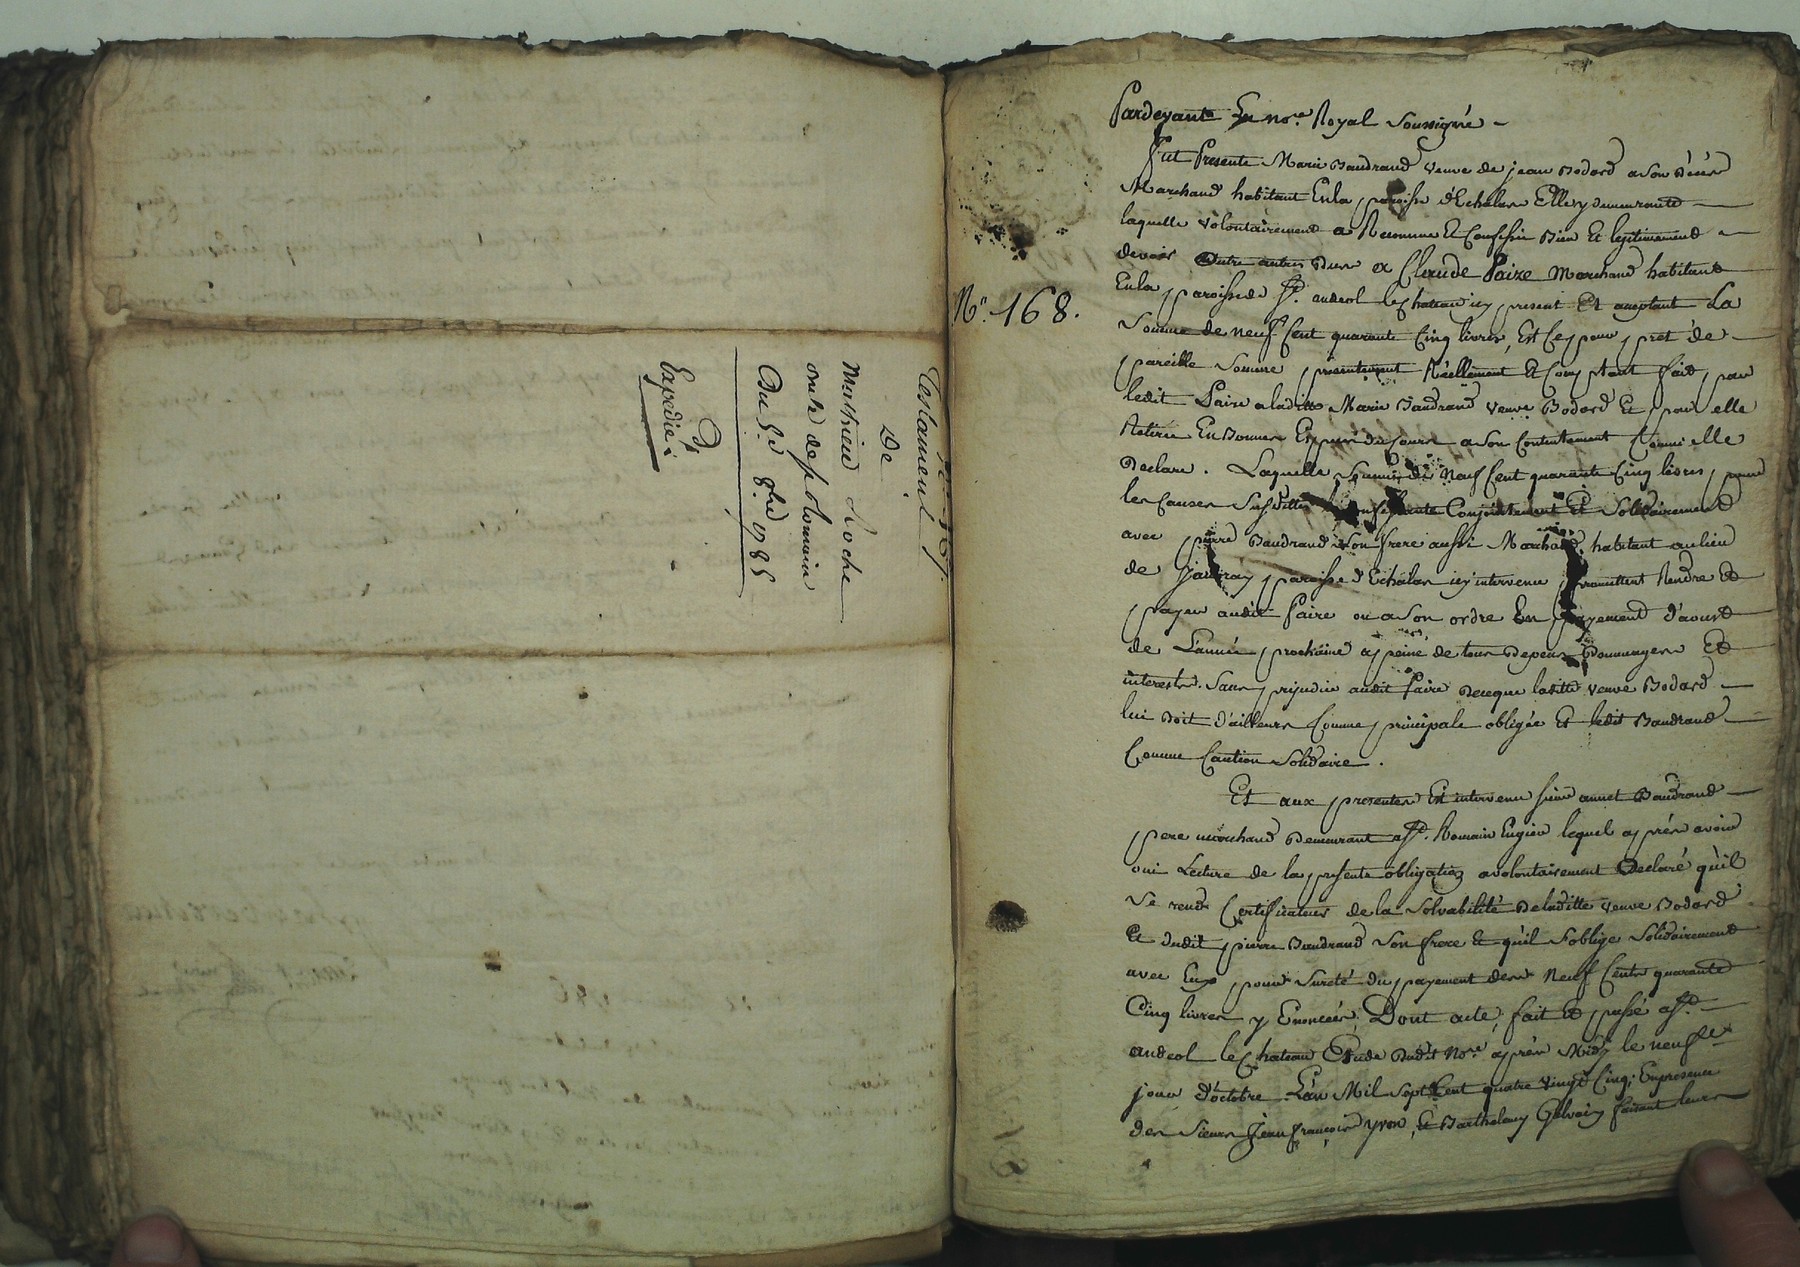 N°. 167.
Testament
De
Mathieu Roche
oncle de polomieu
Du 5.e 8.bre 1785
Expedie:
N°. 168.
Pardevant Le no.re Royal soussigné
fut Presente Marie Baudrand veuve de jean Bodard a son décés
Marchand habitant En la paroisse d'Echalas Elle y demeurante
laquelle volontairement a Reconnue Et Confessée Bien Et legitimement
devoir a Claude Paire Marchand habitant
En la paroisse de S.t andeol le chateau icy present Et acceptant La
Somme de neuf Cent quarante Cinq livres, Est Ce pour pret de
pareille Somme presentement Réellement Et Comptant fait par
ledit Paire a laditte Marie Baudrand veuve Bodard Et par elle
Retirée En Bonnes Especes du Cours a son Contentement Comme elle
Declare. Laquelle Somme de Neuf Cent quarante Cinq livres pour
les Causes Susdittes la Confessante Conjointement Et Solidairement
avec pierre Baudrand son frere aussi Marchand habitant au lieu
de paroisse d'Echalas icy intervenu promettent Rendre Et
payer audit Paire ou a Son ordre En payement d'aoust
de L'année prochaine a peine de tous Depens Dommages Et
interests. Sans prejudice audit Paire De ce que laditte veuve Bodard
lui Doit d'ailleurs Comme principale obligée Et ledit Baudrand
Comme Caution Solidaire.
Et aux presentes Est intervenu sieur annet Baudrand
pere marchand Demeurant a S.t Romain Engier lequel aprés avoir
oui Lecture de la presente obligation a volontairement Declaré qu'il
Se rend Certificateur de la Solvabilité De laditte veuve Bodard
Et dudit pierre Baudrand Son frere Et qu'il S'oblige Solidairement
avec Eux pour Sureté du payement des Neuf Cents quarante
Cinq livres y Enoncées, Dont acte, fait Et passé a S.t
andeol le Chateau Etude Dudit No.re aprés Midy le neuf.e
jour d'octobre L'an Mil Sept Cent quatre vingt Cinq; En presence
des Sieurs Jean françois yvon, Et Barthelemy Gelvain faisant leurs